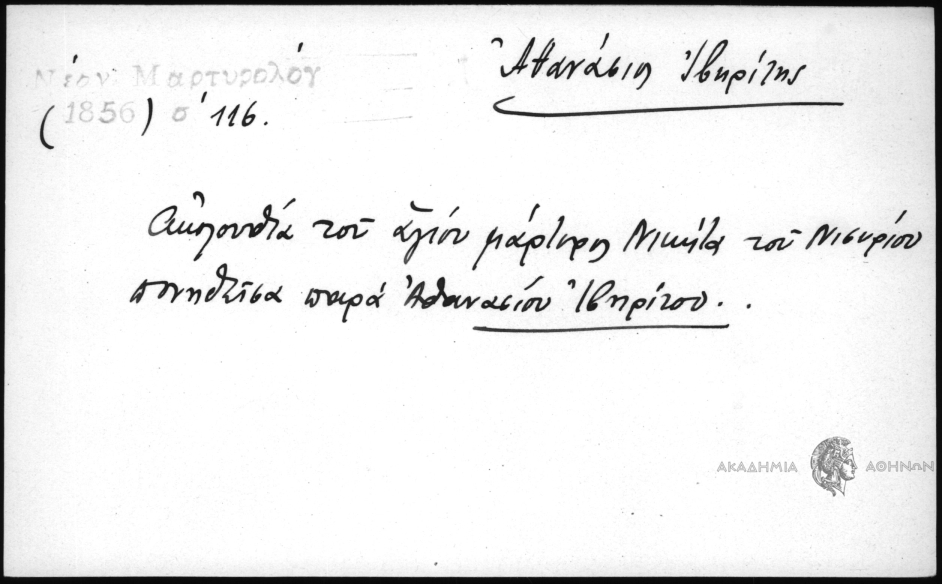 Νέον Μαρτυρολόγ
(1856) σ' 116.
Ἀθανάσιος Ἰβηρίτης
Ἀκολουθία τοῦ ἁγίου μάρτυρος Νικήτα τοῦ Νισυρίου
πονηθεῖσα παρὰ Ἀθανασίου Ἰβηρίτου..
ΑΚΑΔΗΜΙΑ ΑΘΗΝΩΝ